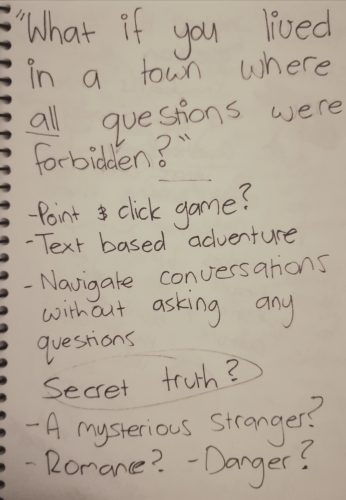 "What if you lived
in a town where
all questions were
forbidden?"
-Point & click game?
-Text based adventure
- Navigate conversations
without asking any
questions
Secret truth?
- A mysterious stranger?
- Romance? - Danger?